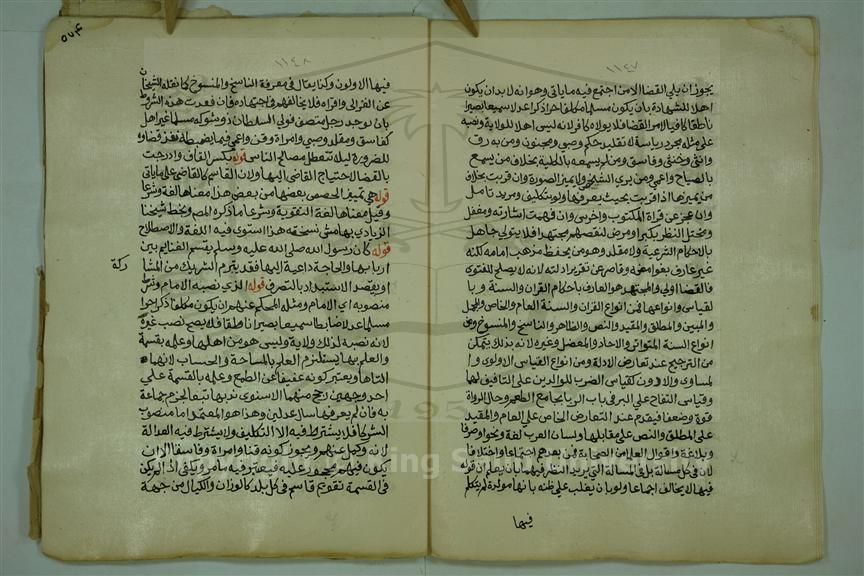 ١١٤٧
يجوز ان يلي القضا الا من اجتمع فيه ما ياتي وهو انه لا بد ان يكون
اهلا للشهادة بان يكون مسلما مكلفا حرا ذكرا عدلا سميعا بصيرا
ناطقا كافيا لامر القضا فلا يولاه كافر لانه ليس اهلا للولاية ونصبه
على مثله مجرد رياسة لا تقليد حكم وصبي ومجنون ومن به رق
وانثى وخنثى وفاسق ومن لم يسمعه بالكلية بخلاف من يسمع
بالصياح واعمي ومن يري الشبح ولا يميز الصورة وان قربت بخلاف
من يميزها اذا قربت بحيث يعرفها ولو بتكليف ومزيد تامل
وان عجز عن قراة المكتوب واخرس وان فهمت اشارته ومغفل
ومختل النظر بكبر او مرض لنقصهم مجتهدا فلا يتولي جاهل
بالاحكام الشرعية ولا مقلد وهو من يحفظ مذهب امامه لكنه
غير عارف بغوامضه وقاصر عن تقرير ادلته لانه لا يصلح للفتوى
فالقضا اولي والمجتهد هو العارف باحكام القران والسنة و با
لقياس وانواعها فمن انواع القران والسنة العام والخاص والمجمل
و المبين والمطلق والمقيد والنص والظاهر والناسخ والمنسوخ ومن
انواع السنة المتواتر والاحاد والمتصل وغيره لانه بذلك يتمكن
من الترجيح عند تعارض الادلة ومن انواع القياس الاولوي و ا
لمساوي والادون كقياس الضرب للوالدين على التافيف لهما
وقياس التفاح علي البر في باب الربا بجامع الطعم وحال الرواة
قوة وضعفا فيقدم عند التعارض الخاص علي العام والمقيد
على المطلق والنص على مقابلها ولسان العرب لغة ونحوا وصرفا
وبلاغة واقوال العلما من الصحابة فمن بعدهم اجتماعا واختلافا
لان في كل مسالة بل في المسالة التي يريد النظر فيها بان يعلم ان قوله
فيها لا يخالف اجماعا ولو بان يغلب علي ظنه بانها مولدة لم يتكلم
فيها
١١٤٨
٥٧٤
فيها الاولون وكذا يقال في معرفة الناسخ والمنسوخ كما نقله الشيخان
عن الغزالي واقراه فلا يخالفهم في اجتهاده فان فقدت هذه الشروط
بان لم يوجد رجل متصف فولي السلطان ذو شوكة مسلما غير اهل
كفاسق ومقلد وصبي وامراة وقن واعمي فيما يضبطه نفذ قضاوه
للضرورة ليلا تتعطل مصالح الناس قوله بكسر القاف وادرجت
بالقضا لاحتياج القاضي اليها ولان القاسم كالقاضي على ما ياتي
قوله هي تمييز الحصص بعضها من بعض هذا معناها لغة وشرعا
وقيل معناها لغة التفرقة وشرعا ما ذكره المص وبخط شيخنا
الزيادي بهامش نسخته هذا استوي فيه اللغة والاصطلاح
قوله كان رسول الله صلى الله عليه وسلم يقسم الغنايم بين
اربابها والحاجة داعية اليها فقد يتبرم الشريك من المشا
ركة
او يقصد الاستبداد بالتصرف قوله الذي نصبه الامام وشرط
منصوبه اي الامام ومثله المحكم عنهم ان يكون مكلفا ذكرا حرا
مسلما عدلا ضابطا سميعا بصيرا ناطقا فلا يصح نصب غيره
لانه نصبه لذلك ولاية وليس هو من اهلها وعلمه بقسمة
والعلم بها يستلزم العلم بالمساحة والحساب لانهما
التاها ويعتبر كونه عفيفا عن الطمع وعلمه بالقسمة علي
احد وجهين رجح منهما الاسنوي ندبها تبعا لجزم جماعة
به فان لم يعرفها سال عدلين وهذا هو المعتمد اما منصوب
الشركا فلا يشترط فيه الا التكليف ولا يشترط فيه العدالة
لانه وكيل عنهم ويجوز كونه قنا وامراة وفاسقا الا ان
يكون فيهم محجور عليه فيعتبر فيه ما مر ويكفي اذا لم يكن
في القسمة تقويم قاسم في كل بلد كالوزان والكيال من جهة